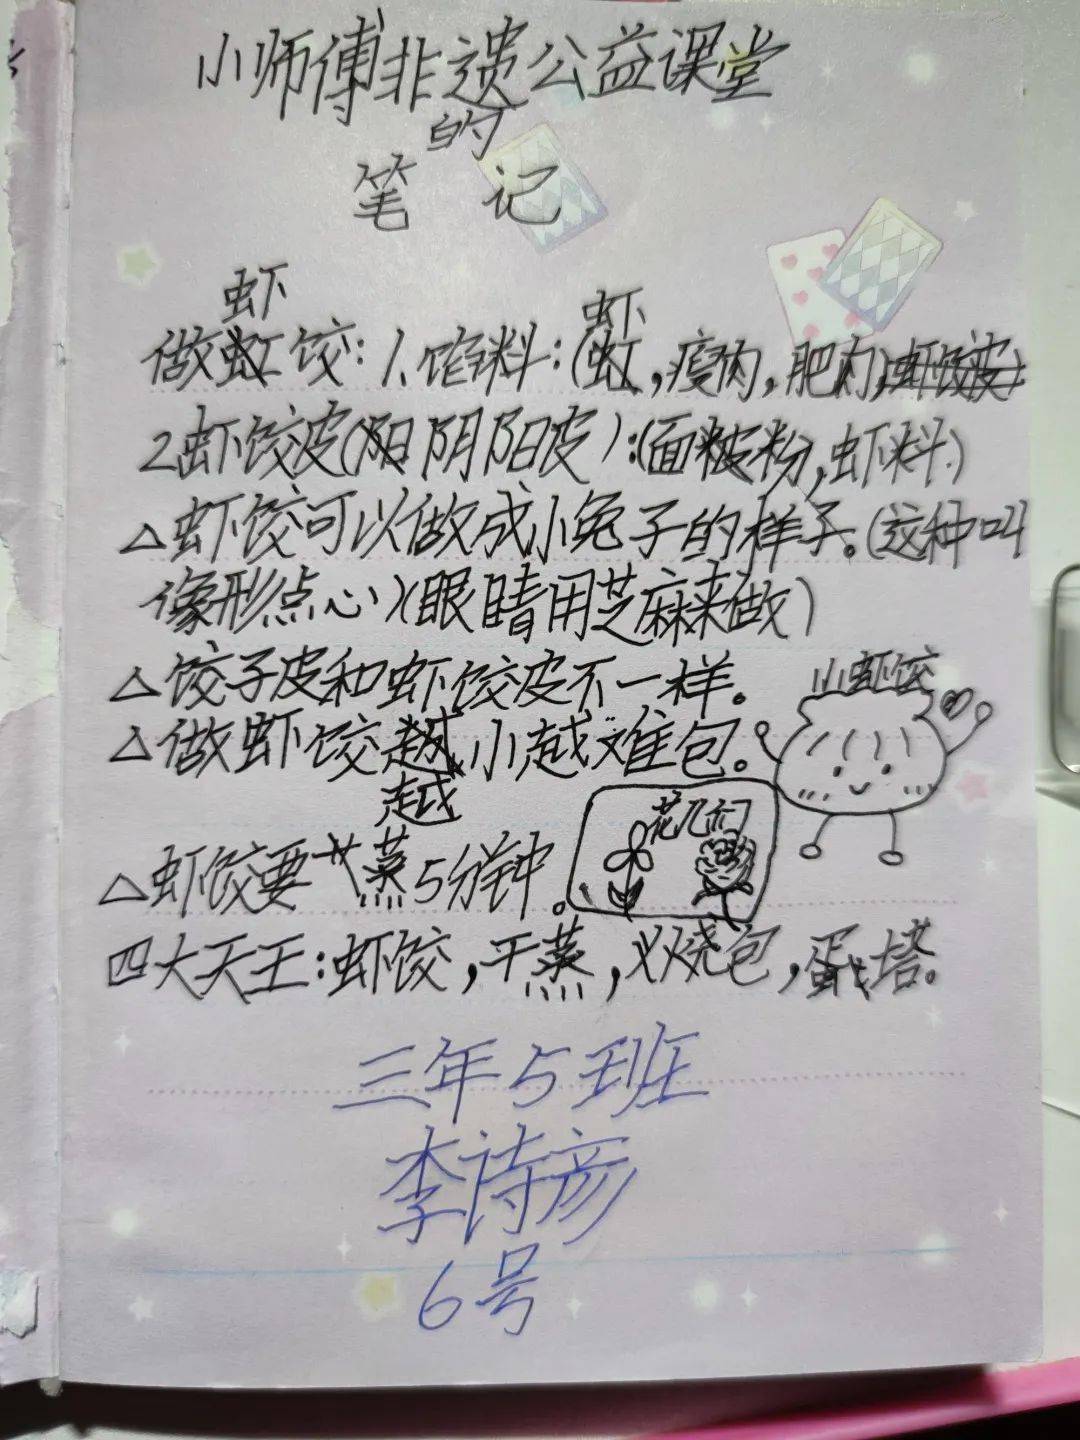 小师傅非遗公益课堂
的
笔记
虾 虾
做虹饺:1.馅料:(虹,瘦肉,肥肉,虾饺皮):
2虾饺皮(阳阴阳皮):(面粉,虾料.)
△虾饺可以做成小兔子的样子。(这种叫
像形点心)(眼睛用芝麻来做)
△饺子皮和虾饺皮不一样。
小虾饺
△做虾饺越小越难包。
越
花儿们
△虾饺要蒸5分钟。
四大天王:虾饺,干蒸,叉烧包,蛋塔。
三年5班
李诗彦
6号